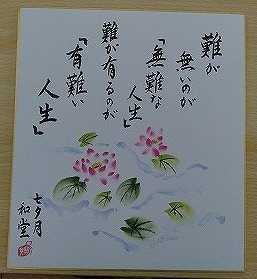 難が
無いのが
「無難な
人生」
難が有るのが
「有難い
人生」
七夕月
和堂